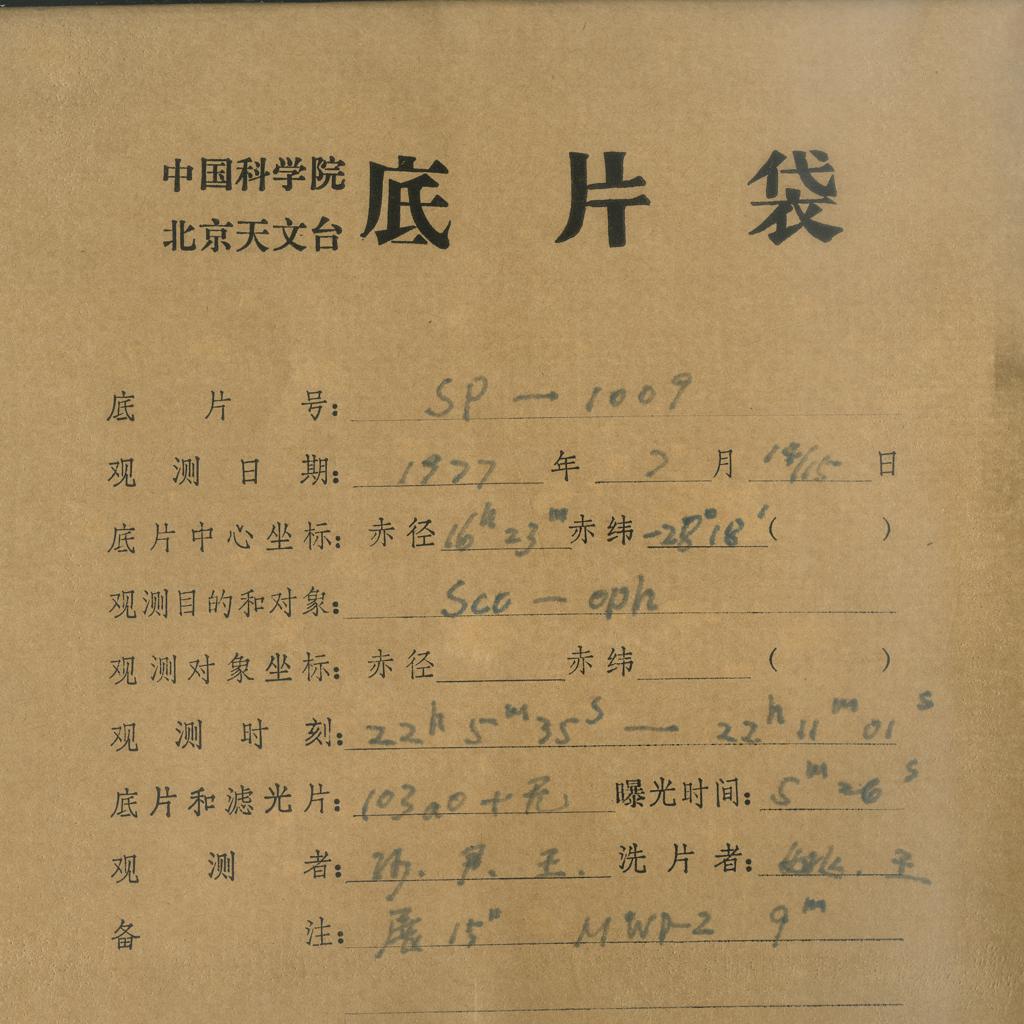 中国科学院
北京天文台
底片袋
底片号：SP — 1009
观测日期：1977年7月14/15日
底片中心坐标：赤径16h23m赤纬-28°18′（ ）
观测目的和对象：Sco — oph
观测对象坐标：赤径 赤纬 （ ）
观测时刻：22h5m35s — 22h11m01s
底片和滤光片：103a0+无 曝光时间：5m26s
观测者： 王. 洗片者： 王
备注： 15" 9m